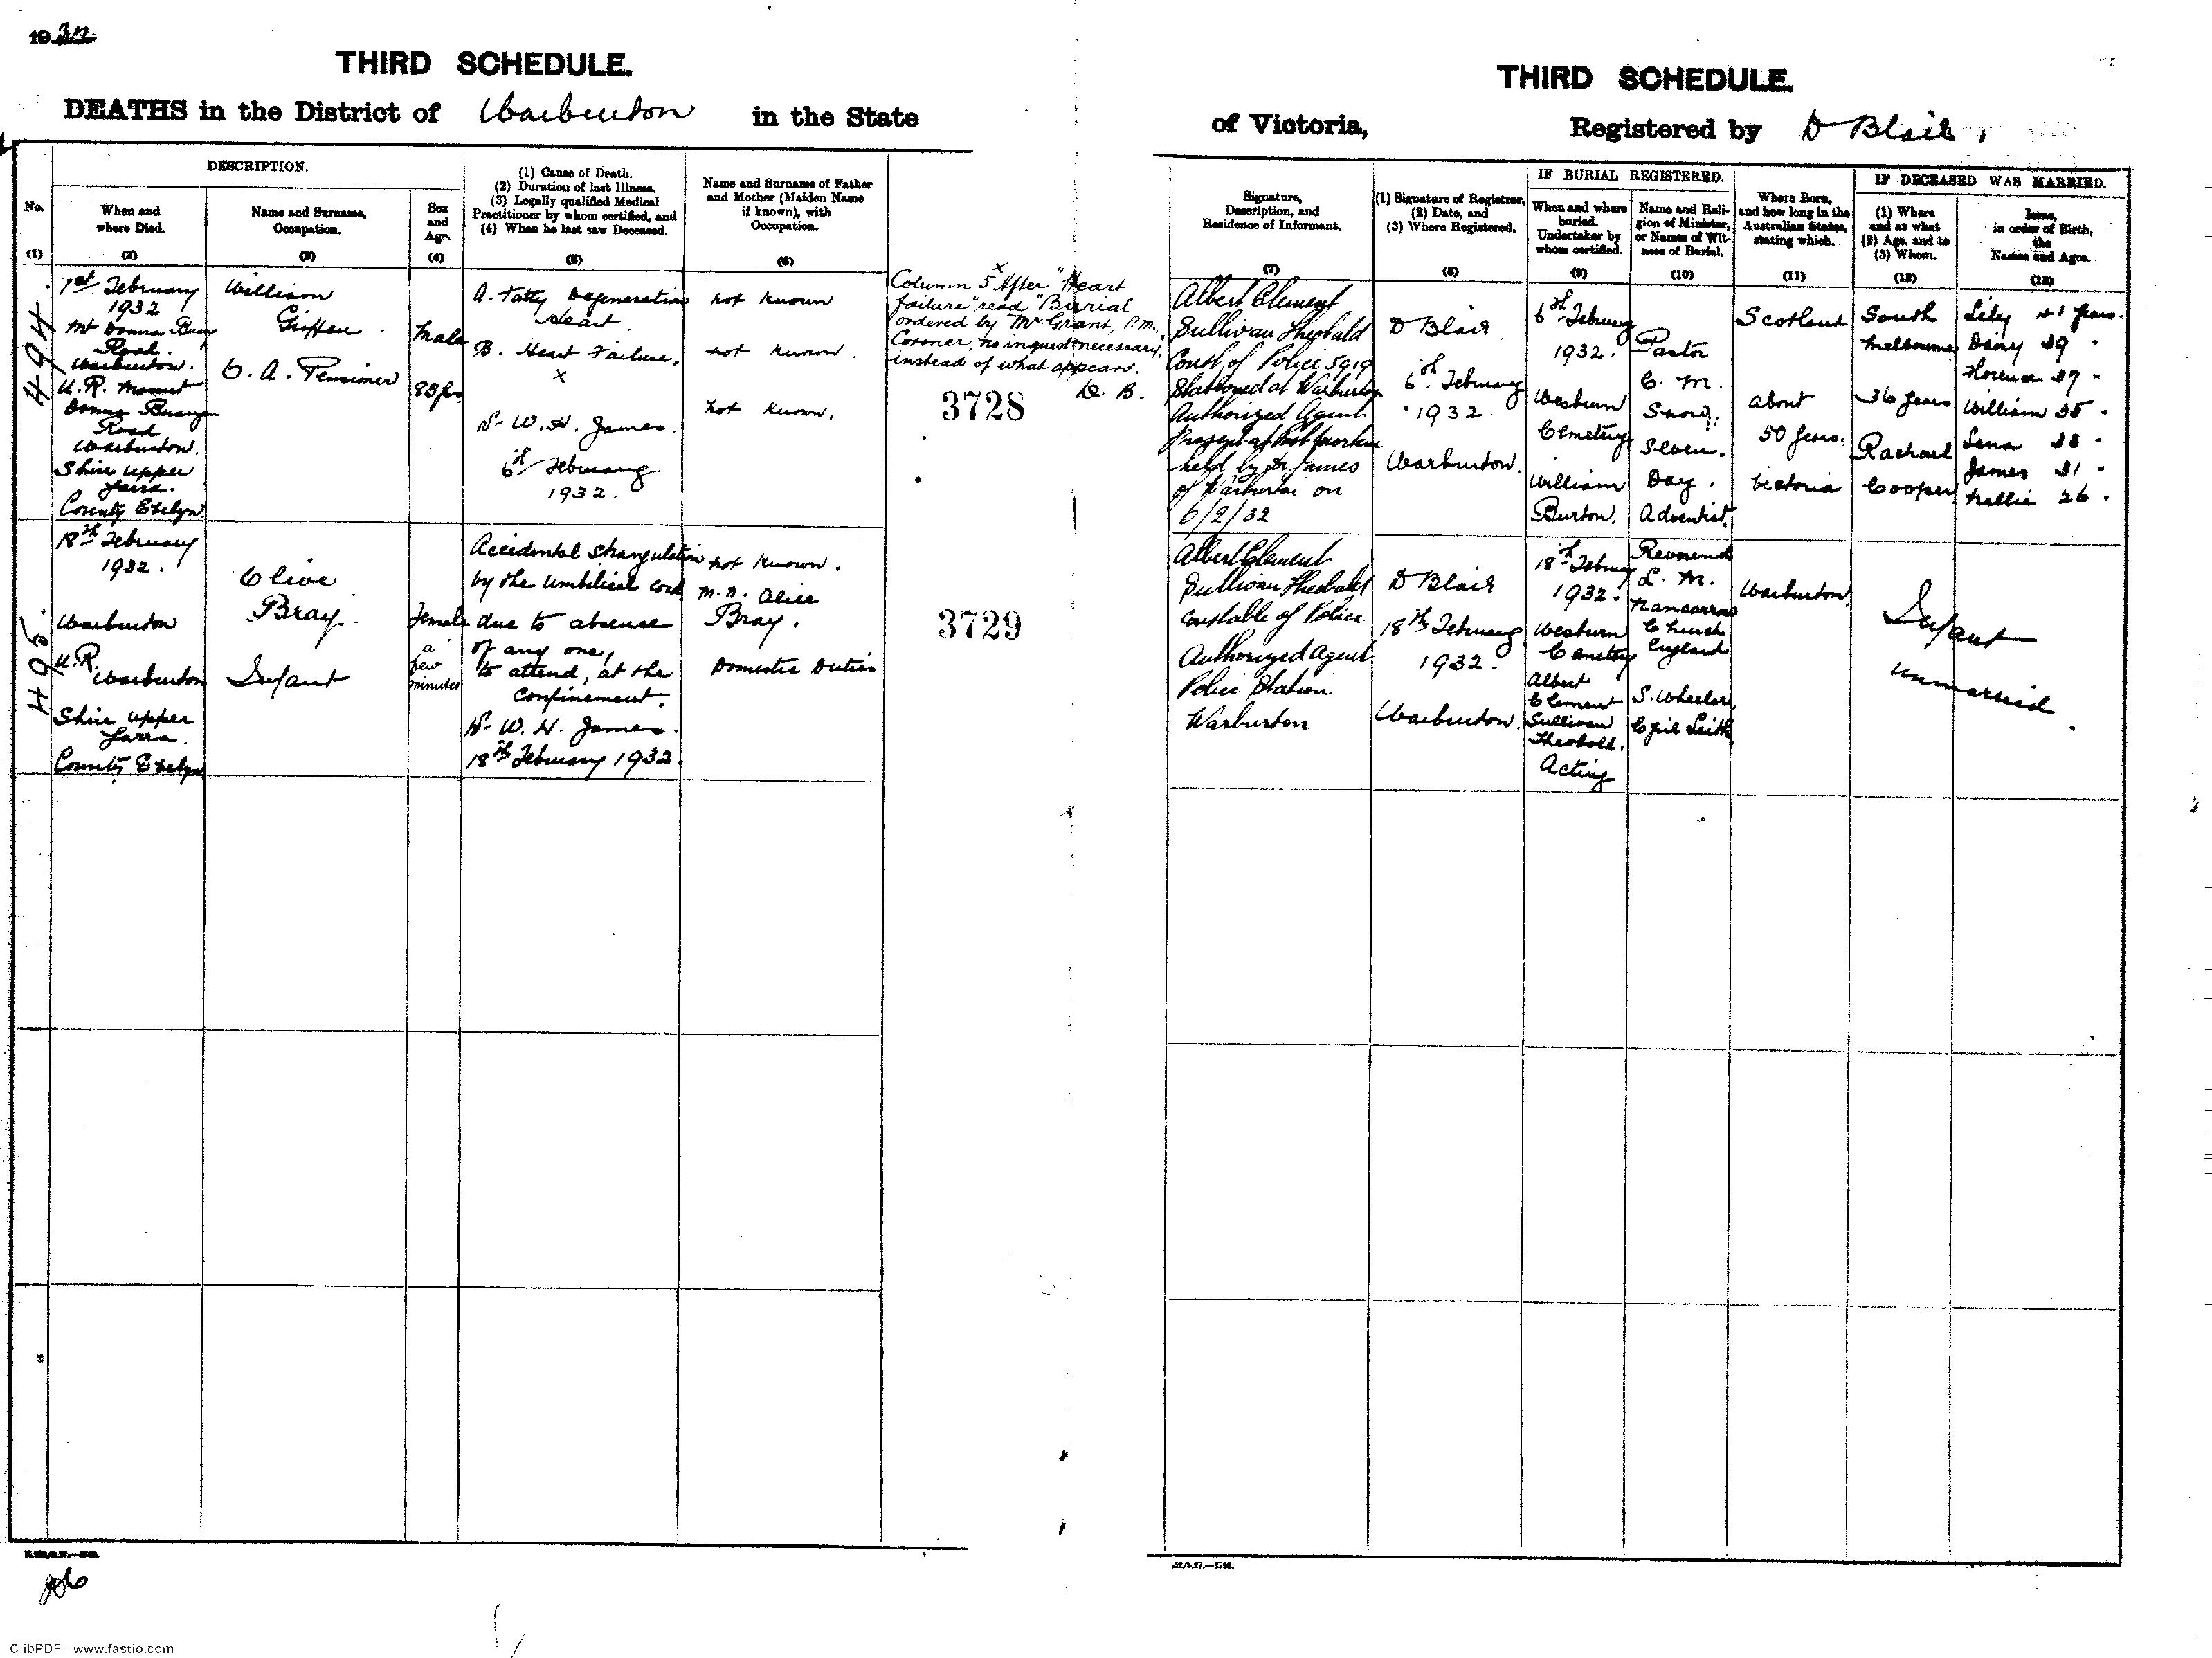 1932
THIRD SCHEDULE.
DEATHS in the District of Warburton in the State
No.
(1)
DESCRIPTION.
When and
where Died.
(2)
Name and Surname,
Occupation.
(3)
Sex
and
Age.
(4)
(1) Cause of Death.
(2) Duration of last Illness.
(3) Legally qualified Medical
Practitioner by whom certified, and
(4) When he last saw Deceased.
(5)
Name and Surname of Father
and Mother (Maiden Name
if known), with
Occupation.
(6)
494.
1st February
1932
Mt Donna Buang
Road.
Warburton.
U.R. Mount
Donna Buang
Road
Warburton.
Shire Upper
Yarra.
County Evelyn
William
Giffen
O. A. Pensioner
Male
83 yrs
A. Fatty Degeneration
Heart
B. Heart Failure.
x
Dr W. H. James.
6th February
1932.
not known
not known.
not known.
x
Column 5 After "Heart
failure" read "Burial
ordered by Mr. Grant, P.M.,
Coroner, no inquest necessary,
instead of what appears.
D B.
3728
495.
18th February
1932.
Warburton
U.R.
Warburton
Shire Upper
Yarra.
County Evelyn
Olive
Bray.
Infant
Female
a
few
minutes
Accidental strangulation
by the umbilical cord
due to absence
of any one,
to attend, at the
confinement.
Dr W. H. James.
18th February 1932.
not known.
M. N. Alice
Bray.
Domestic Duties
3729
THIRD SCHEDULE.
of Victoria, Registered by D Blair.
Signature,
Description, and
Residence of Informant.
(7)
(1) Signature of Registrar,
(2) Date, and
(3) Where Registered.
(8)
IF BURIAL REGISTERED.
When and where
buried.
Undertaker by
whom certified.
(9)
Name and Reli-
gion of Minister,
or Names of Wit-
ness of Burial.
(10)
Where Born,
and how long in the
Australian States,
stating which.
(11)
IF DECEASED WAS MARRIED.
(1) Where
and at what
(2) Age, and to
(3) Whom.
(12)
Issue,
in order of Birth,
the
Names and Ages.
(13)
Albert Clement
Sullivan Theobald
Const. of Police 5919
Stationed at Warburton
Authorized Agent
Present at Post mortem
held by Dr James
of Warburton on
6/2/32
D Blair
6th February
1932.
Warburton.
6th February
1932.
Wesburn
Cemetery
William
Burton.
Pastor
C. M.
Snow.
Seven.
Day.
Adventist.
Scotland
about
50 years.
Victoria
South
Melbourne
36 years
Rachael
Cooper
Lily 41 years.
Daisy 39 "
Florence 37 "
William 35 "
Lena 33 "
James 31 "
Nellie 26 "
Albert Clement
Sullivan Theobald
Constable of Police
Authorized Agent
Police Station
Warburton
D Blair
18th February
1932.
Warburton.
18th February
1932.
Wesburn
Cemetery
Albert
Clement
Sullivan
Theobald.
Acting
Reverend
L. M.
Nancarrow
Church
England
S. Wheeler,
Cyril Leith.
Warburton.
Infant
unmarried.
26
ClibPDF - www.fastio.com